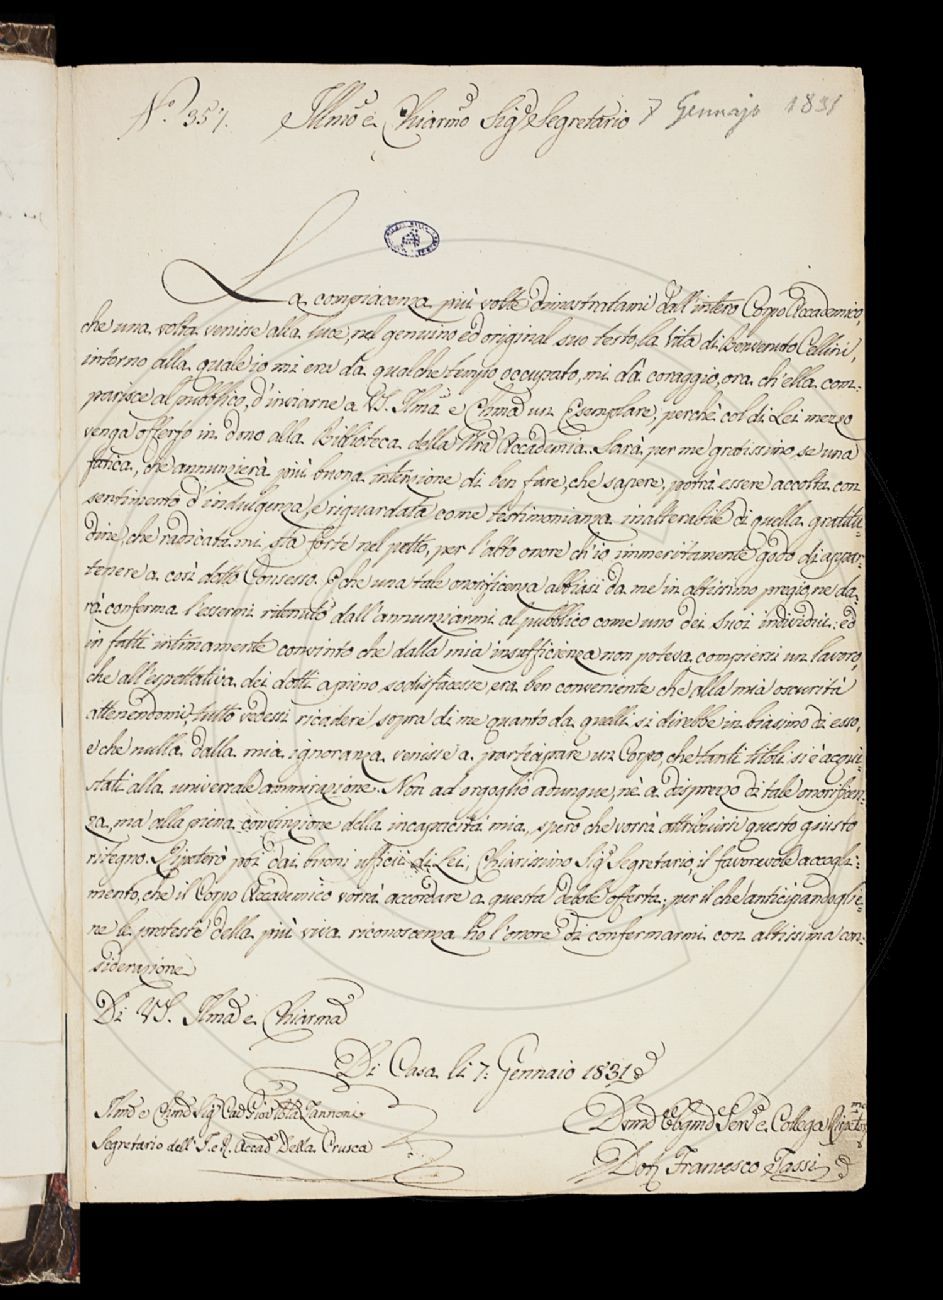 N.° 357. Illmo e Chiarmo Sigr Segretario 7 Gennajo 1831
La compiacenza più volte dimostratami dall'intero Corpo Accademico,
che una volta venisse alla luce, nel genuino ed original suo testo, la Vita di Benvenuto Cellini,
intorno alla quale io mi era da qualche tempo occupato, mi dà coraggio, ora ch'ella com=
parisce al pubblico, d'inviarne a V.S. Illma e Chma un Esemplare, perchè col di Lei mezzo
venga offerto in dono alla Biblioteca della Accademia. Sarà per me gratissimo, se una
fatica, che annunzierà più buona intenzione di ben fare, che sapere, potrà essere accolta con
sentimento d'indulgenza, e riguardata come testimonianza inalterabile di quella gratitu=
dine, che radicata mi sta forte nel petto, per l'alto onore ch'io immeritamente godo di appar=
tenere a così dotto Consesso. E che una tale onorificenza abbiasi da me in altissimo pregio, ne da=
rà conferma l'essermi ritenuto dall'annunziarmi al pubblico come uno dei suoi individui: ed
in fatti intimamente convinto che dalla mia insufficienza non poteva compiersi un lavoro,
che all'espettativa dei dotti a pieno sodisfacesse, era ben conveniente che alla mia oscurità
attenendomi, tutto vedessi ricadere sopra di me quanto da quelli si direbbe in biasimo di esso,
e che nulla dalla mia ignoranza venisse a participare un Corpo, che tanti titoli si è acqui=
stati alla universale ammirazione. Non ad orgoglio adunque, nè a disprezzo di tale onorificen=
za, ma alla piena convinzione della incapacità mia, spero che vorrà attribuirsi questo giusto
ritegno. Ripeterò poi dai buoni ufficii di Lei, Chiarissimo Sigr Segretario, il favorevole accogli=
mento, che il Corpo Accademico vorrà accordare a questa debole offerta; per il che anticipandogliе=
ne le proteste della più viva riconoscenza ho l'onore di confermarmi con altissima con=
siderazione
Di V.S. Illma e Chiarma
Di Casa li 7. Gennaio 1831
Illmo e Chmo Sigr Cav. Giov. Batta Zannoni
Segretario dell'I. e R. Accad. Della Crusca
Devmo Obbmo Serve e Collega
Dott. Francesco Tassi